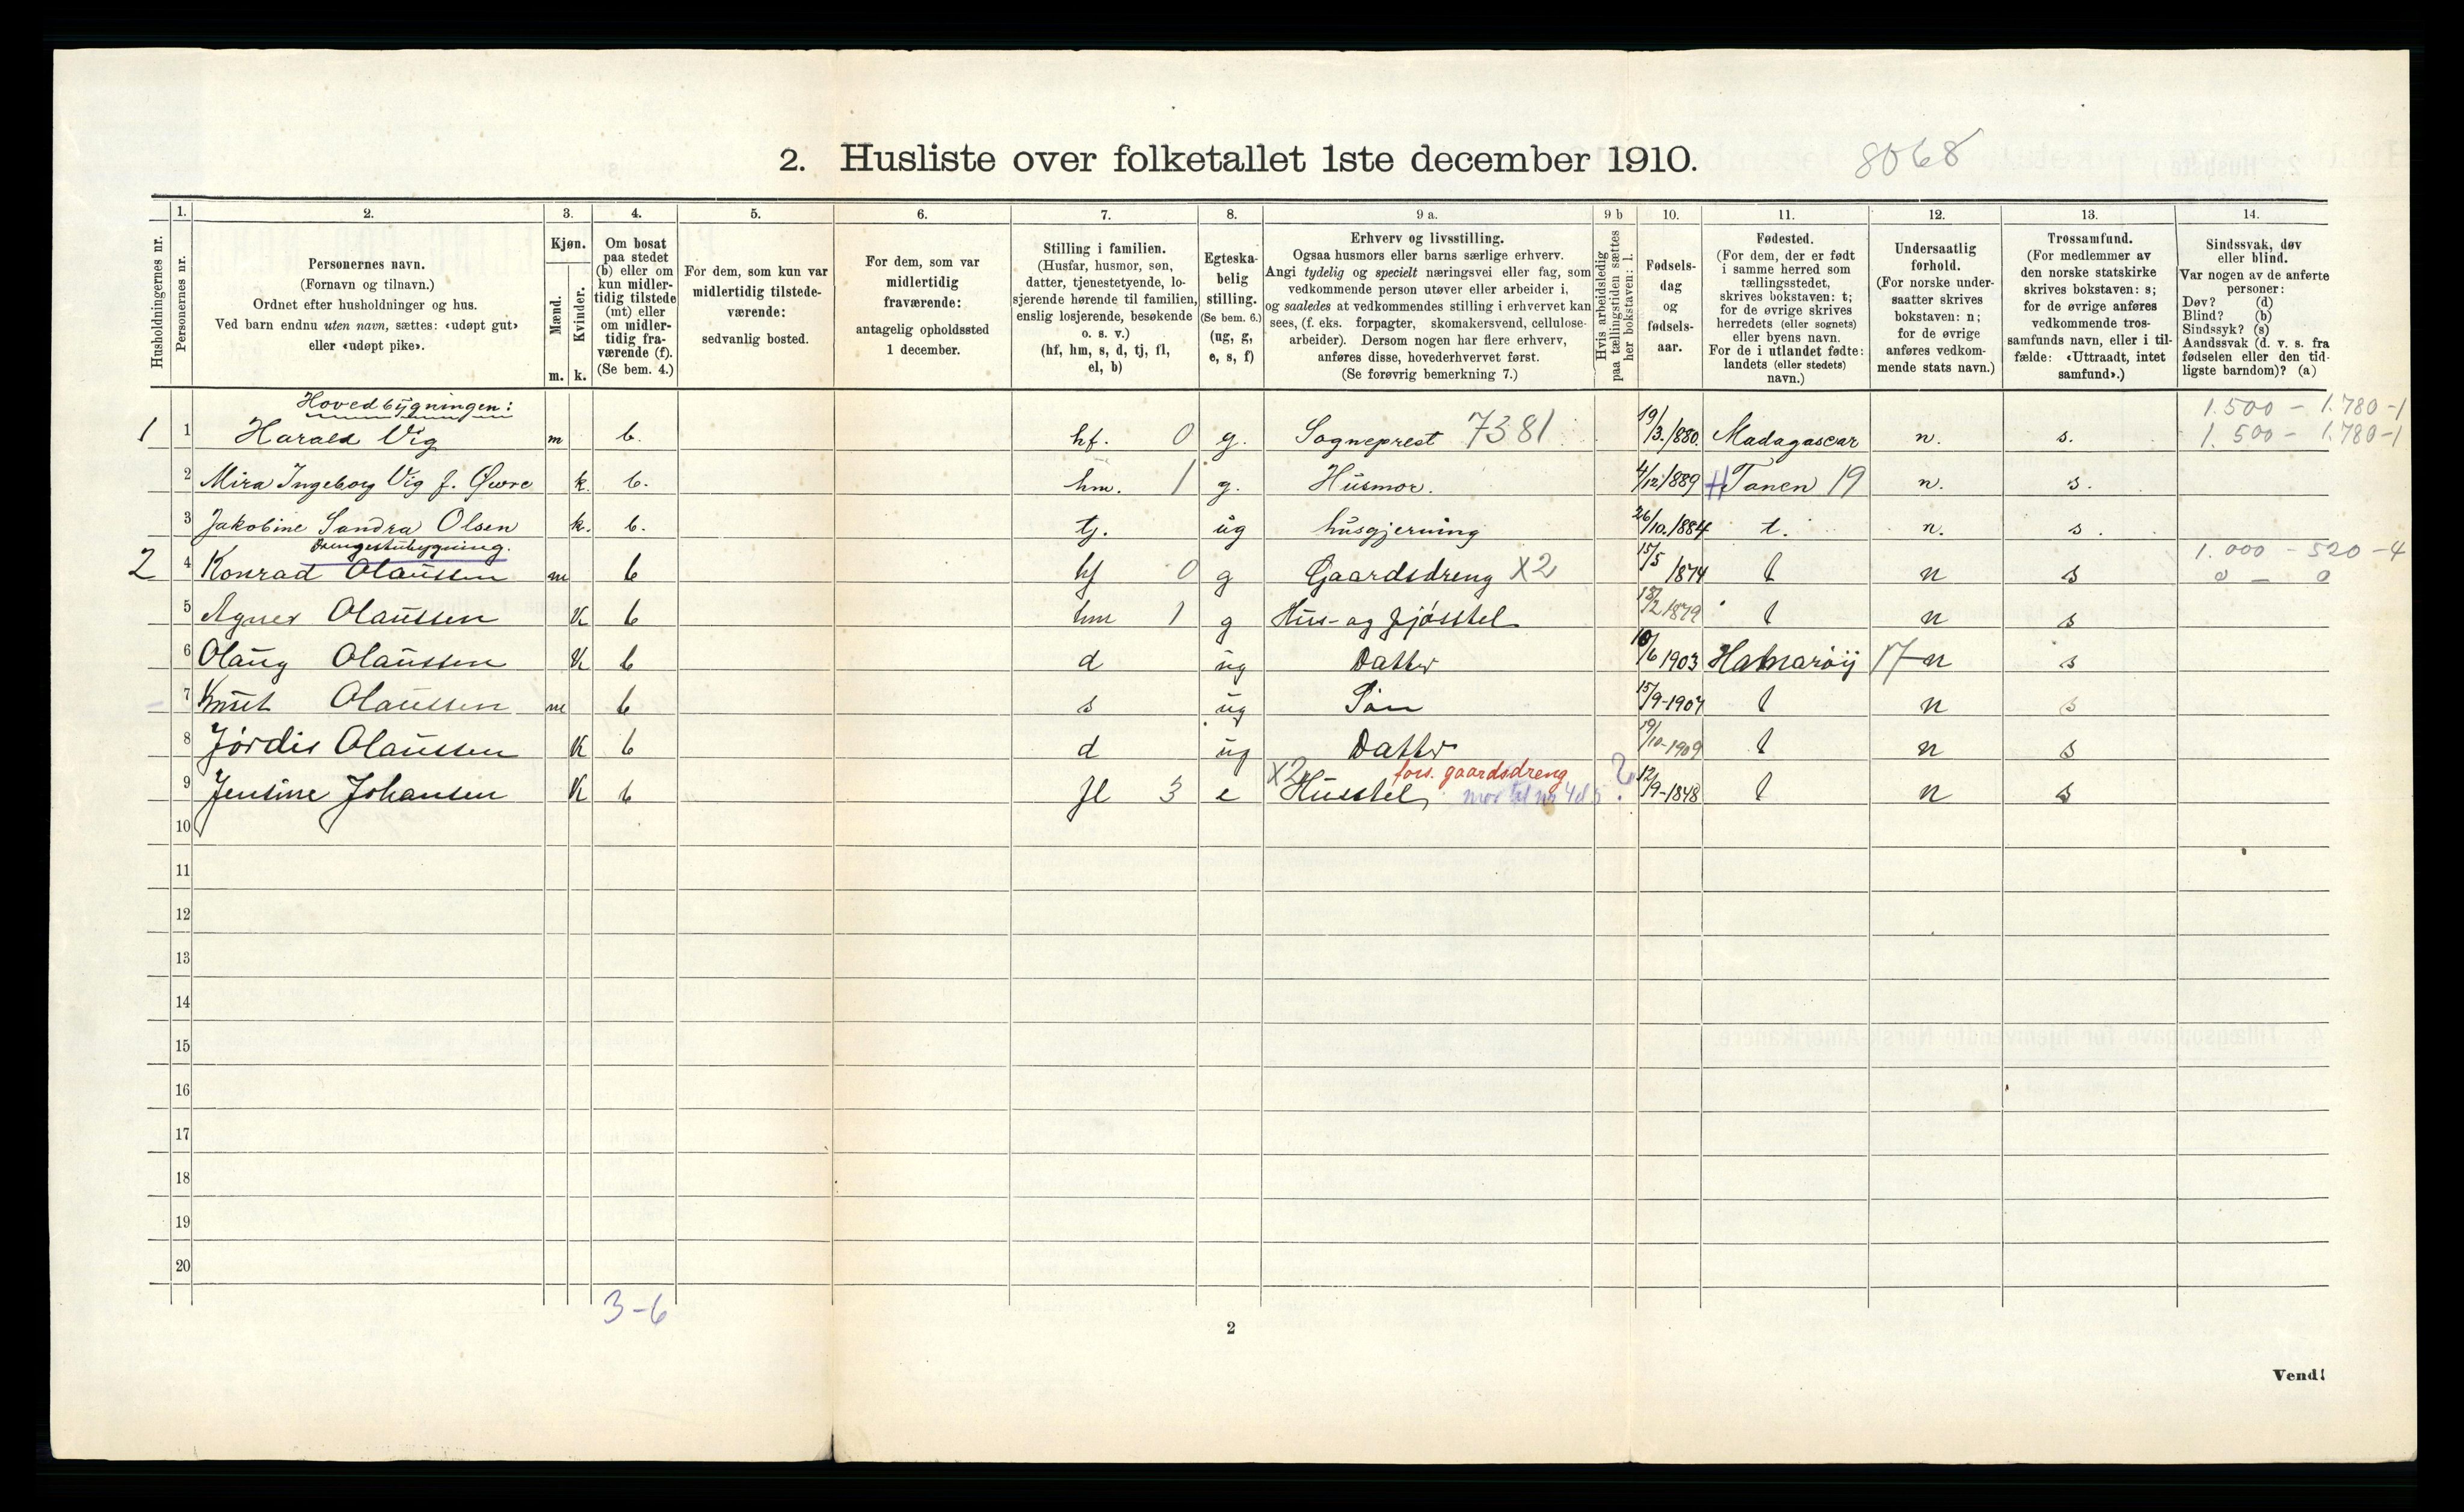 2. Husliste over folketallet 1ste december 1910.
8068
Husholdningernes nr.
1.
Personernes nr.
2.
Personernes navn.
(Fornavn og tilnavn.)
Ordnet efter husholdninger og hus.
Ved barn endnu uten navn, sættes: «udøpt gut»
eller «udøpt pike».
3.
Kjøn.
Mænd.
Kvinder.
m. k.
4.
Om bosat
paa stedet
(b) eller om
kun midler-
tidig tilstede
(mt) eller
om midler-
tidig fra-
værende (f).
(Se bem. 4.)
5.
For dem, som kun var
midlertidig tilstede-
værende:
sedvanlig bosted.
6.
For dem, som var
midlertidig
fraværende:
antagelig opholdssted
1 december.
7.
Stilling i familien.
(Husfar, husmor, søn,
datter, tjenestetyende, lo-
sjerende hørende til familien,
enslig losjerende, besøkende
o. s. v.)
(hf, hm, s, d, tj, fl,
el, b)
8.
Egteska-
belig
stilling.
(Se bem. 6.)
(ug, g,
e, s, f)
9 a.
Erhverv og livsstilling.
Ogsaa husmors eller barns særlige erhverv.
Angi tydelig og specielt næringsvei eller fag, som
vedkommende person utøver eller arbeider i,
og saaledes at vedkommendes stilling i erhvervet kan
sees, (f. eks. forpagter, skomakersvend, cellulose-
arbeider). Dersom nogen har flere erhverv,
anføres disse, hovederhvervet først.
(Se forøvrig bemerkning 7.)
9 b
Hvis arbeidsledig
paa tællingstiden sættes
her bokstaven: l.
10.
Fødsels-
dag
og
fødsels-
aar.
11.
Fødested.
(For dem, der er født
i samme herred som
tællingsstedet,
skrives bokstaven: t;
for de øvrige skrives
herredets (eller sognets)
eller byens navn.
For de i utlandet fødte:
landets (eller stedets)
navn.)
12.
Undersaatlig
forhold.
(For norske under-
saatter skrives
bokstaven: n;
for de øvrige
anføres vedkom-
mende stats navn.)
13.
Trossamfund.
(For medlemmer av
den norske statskirke
skrives bokstaven: s;
for de øvrige anføres
vedkommende tros-
samfunds navn, eller i til-
fælde: «Uttraadt, intet
samfund».)
14.
Sindssvak, døv
eller blind.
Var nogen av de anførte
personer:
Døv? (d)
Blind? (b)
Sindssyk? (s)
Aandssvak (d. v. s. fra
fødselen eller den tid-
ligste barndom)? (a)
Hovedbygningen: 1.500 - 1.780 - 1
1 1 Harald Vig m b. hf. 0 g. Sogneprest 7381 19/3. 1880. Madagascar n. s. 1.500 - 1.780 - 1
2 Mira Ingeborg Vig f. Øwre k. b. hm. 1 g. Husmor. 4/12 1889 Tanen 19 n. s.
3 Jakobine Sandra Olsen k. b. tj. ug husgjerning 26/10. 1884 t. n. s.
Drengestubygning. 1.000 - 520 - 4
2 4 Konrad Olaussen m b hf 0 g Gaardsdreng X2 15/5 1874 t n s 0 - 0
5 Agnes Olaussen K b hm 1 g Hus- og fjøsstel 1879 t n s
6 Olaug Olaussen K b d ug Datter /6 1903 Hamarøy 17 n s
7 Knut Olaussen m b s ug Søn 15/9-1907 t n s
8 Jørdis Olaussen K b d ug Datter 19/10-1909 t n s
X2 fors. gaardsdreng
9 Jensine Johansen K b fl 3 e Husstel, mor til nr 4 el 5 ? 12/9-1848 t n s
10
11
12
13
14
15
16
17
18
19
20
3-6
2
Vend!